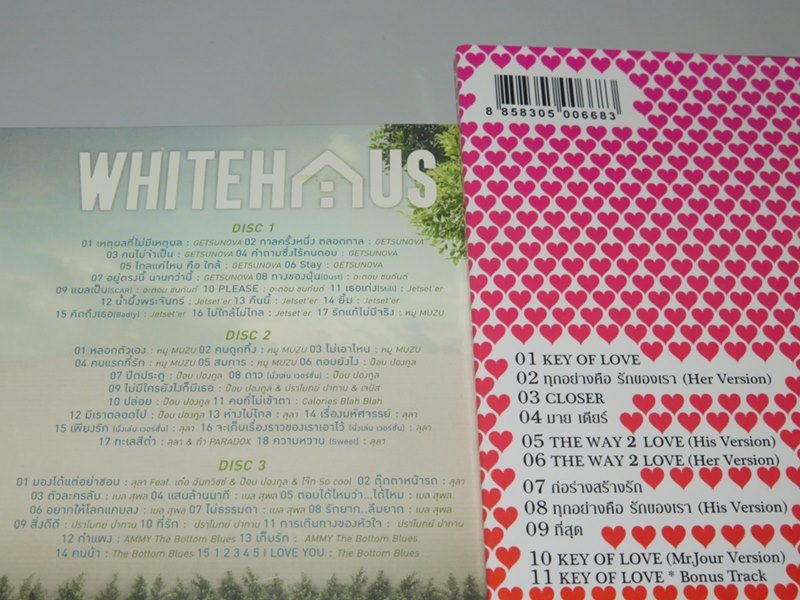 WHITEHAUS
DISC 1
01 เหตุผลที่ไม่มีเหตุผล : GETSUNOVA 02 กาลครั้งหนึ่ง ตลอดกาล : GETSUNOVA
03 คนไม่จำเป็น : GETSUNOVA 04 คำถามซึ่งไร้คนตอบ : GETSUNOVA
05 ไกลแค่ไหน คือ ใกล้ : GETSUNOVA 06 Stay : GETSUNOVA
07 อยู่ตรงนี้ นานกว่านี้ : GETSUNOVA 08 ทางของฝุ่น(Dust) : อะตอม ชนกันต์
09 แผลเป็น(SCAR) : อะตอม ชนกันต์ 10 PLEASE : อะตอม ชนกันต์ 11 เธอเก่ง(Still) : Jetset'er
12 น้ำนิ่งพระจันทร์ : Jetset'er 13 คืนนี้ : Jetset'er 14 ยิ้ม : Jetset'er
15 คิดถึงเธอ(Badly) : Jetset'er 16 ไม่ใกล้ไม่ไกล : Jetset'er 17 รักแท้ไม่มีจริง : หมู MUZU
DISC 2
01 หลอกตัวเอง : หมู MUZU 02 คนถูกทิ้ง : หมู MUZU 03 ไม่เอาไหน : หมู MUZU
04 คนแรกที่รัก : หมู MUZU 05 สมการ : หมู MUZU 06 ตอบยังไง : ป๊อบ ปองกูล
07 ปิดประตู : ป๊อบ ปองกูล 08 ดาว (นั่งเล่น เวอร์ชั่น) : ป๊อบ ปองกูล
09 ไม่มีใครยังไงก็มีเธอ : ป๊อบ ปองกูล & ปราโมทย์ ปาทาน & เจนิส
10 ปล่อย : ป๊อบ ปองกูล 11 คนที่ไม่เข้าตา : Calories Blah Blah
12 มีเราตลอดไป : ป๊อบ ปองกูล 13 ห่างไม่ไกล : ลุลา 14 เรื่องมหัศจรรย์ : ลุลา
15 เพียงรัก (นั่งเล่น เวอร์ชั่น) : ลุลา 16 จะเก็บเรื่องราวของเราเอาไว้ (นั่งเล่น เวอร์ชั่น) : ลุลา
17 ทะเลสีดำ : ลุลา & ต้า PARADOX 18 ความหวาน (Sweet) : ลุลา
DISC 3
01 มองได้แต่อย่าชอบ : ลุลา Feat. เต๋อ ฉันทวิชช์ & ป๊อบ ปองกูล & โจ๊ก So cool 02 ตุ๊กตาหน้ารถ : ลุลา
03 ตัวละครลับ : เบล สุพล 04 แสนล้านนาที : เบล สุพล 05 ตอบได้ไหมว่า...ได้ไหม : เบล สุพล
06 อยากให้โลกแคบลง : เบล สุพล 07 ไม่ธรรมดา : เบล สุพล 08 รักยาก..ลืมยาก : เบล สุพล
09 สิ่งดีดี : ปราโมทย์ ปาทาน 10 ที่รัก : ปราโมทย์ ปาทาน 11 การเดินทางของหัวใจ : ปราโมทย์ ปาทาน
12 กำแพง : AMMY The Bottom Blues 13 เก็บรัก : AMMY The Bottom Blues
14 คนบ้า : The Bottom Blues 15 1 2 3 4 5 I LOVE YOU : The Bottom Blues
8 858305 006683
01 KEY OF LOVE
02 ทุกอย่างคือ รักของเรา (Her Version)
03 CLOSER
04 มาย เดียร์
05 THE WAY 2 LOVE (His Version)
06 THE WAY 2 LOVE (Her Version)
07 ก่อร่างสร้างรัก
08 ทุกอย่างคือ รักของเรา (His Version)
09 ที่สุด
10 KEY OF LOVE (Mr.Jour Version)
11 KEY OF LOVE * Bonus Track